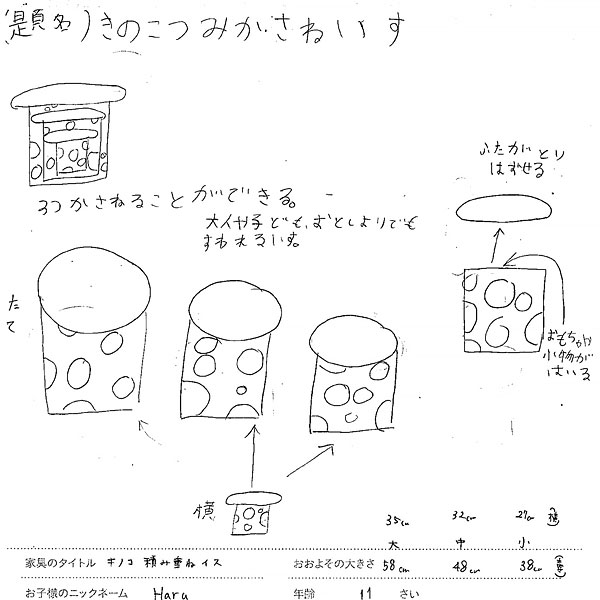 (題名)きのこつみがさねいす
ふたがとり
はずせる
3つかさねることができる。
大人や子ども、おとしよりでも
すわれるいす。
たて
おもちゃや
小物が
はいる
横
35cm 32cm 27cm (横)
大 中 小
家具のタイトル キノコ 積み重ねイス
おおよその大きさ 58cm 48cm 38cm
お子様のニックネーム Haru
年齢 11 さい